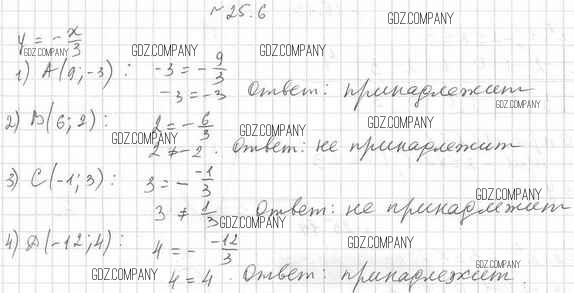 №25.6
GDZ.COMPANY
y = -x/3
GDZ.COMPANY GDZ.COMPANY GDZ.COMPANY
1) A(9;-3): -3 = -9/3
-3 = -3 Ответ: принадлежит
GDZ.COMPANY
2) B(6;2): 2 = -6/3
GDZ.COMPANY GDZ.COMPANY GDZ.COMPANY
2 ≠ -2. Ответ: не принадлежит
3) C(-1;3): 3 = - -1/3
GDZ.COMPANY
3 ≠ 1/3 Ответ: не принадлежит
GDZ.COMPANY
4) D(-12;4): 4 = - -12/3
GDZ.COMPANY
GDZ.COMPANY GDZ.COMPANY
4 = 4. Ответ: принадлежит.